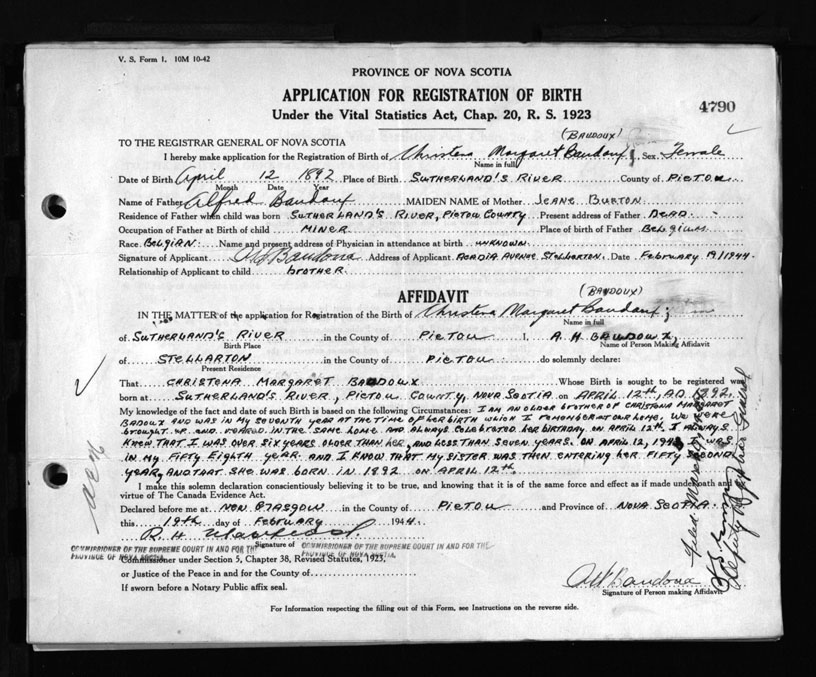 V. S. Form 1. 10M 10-42
PROVINCE OF NOVA SCOTIA
APPLICATION FOR REGISTRATION OF BIRTH
4790
Under the Vital Statistics Act, Chap. 20, R. S. 1923
TO THE REGISTRAR GENERAL OF NOVA SCOTIA
(BAUDOUX)
I hereby make application for the Registration of Birth of Christena Margaret Baudoux; Sex Female
Name in full
Date of Birth April 12 1892 Place of Birth SUTHERLAND'S RIVER County of PICTOU
Month Date Year
Name of Father Alfred Baudoux MAIDEN NAME of Mother JEANE BURTON
Residence of Father when child was born SUTHERLAND'S RIVER, PICTOU COUNTY Present address of Father DEAD
Occupation of Father at Birth of child MINER Place of birth of Father BELGIUM
Race BELGIAN Name and present address of Physician in attendance at birth UNKNOWN
Signature of Applicant Address of Applicant ACADIA AVENUE STELLARTON. Date FEBRUARY 19/1944.
Relationship of Applicant to child brother
AFFIDAVIT
(BAUDOUX)
IN THE MATTER of the application for Registration of the Birth of Christena Margaret Baudoux;
Name in full
of SUTHERLAND'S RIVER in the County of PICTOU I, A. H BAUDOUX,
Birth Place Name of Person Making Affidavit
of STELLARTON in the County of PICTOU do solemnly declare:
Present Residence
That CHRISTENA MARGARET BAUDOUX Whose Birth is sought to be registered was
born at SUTHERLAND'S RIVER, PICTOU COUNTY, NOVA SCOTIA on APRIL 12th, A.D. 1892.
My knowledge of the fact and date of such Birth is based on the following Circumstances: I AM AN OLDER BROTHER OF CHRISTENA MARGARET
BADOUX AND WAS IN MY SEVENTH YEAR AT THE TIME OF HER BIRTH WHICH I REMEMBER AT OUR HOME. WE WERE
BROUGHT UP AND REARED IN THE SAME HOME AND ALWAYS CELEBRATED HER BIRTHDAY ON APRIL 12th. I ALWAYS
KNEW THAT I WAS OVER SIX YEARS OLDER THAN HER, AND LESS THAN SEVEN YEARS. ON APRIL 12, 1943, I WAS
IN MY FIFTY EIGHTH YEAR AND I KNOW THAT MY SISTER WAS THEN ENTERING HER FIFTY SECOND
YEAR, AND THAT SHE WAS BORN IN 1892 ON APRIL 12th.
I make this solemn declaration conscientiously believing it to be true, and knowing that it is of the same force and effect as if made under oath and by
virtue of The Canada Evidence Act.
Declared before me at NEW GLASGOW in the County of PICTOU and Province of NOVA SCOTIA
this 19th day of FEBRUARY 1944.
R. H.
Signature of
COMMISSIONER OF THE SUPREME COURT IN AND FOR THE COMMISSIONER OF THE SUPREME COURT IN AND FOR THE
PROVINCE OF NOVA SCOTIA PROVINCE OF NOVA SCOTIA.
Commissioner under Section 5, Chapter 38, Revised Statutes, 1923,
or Justice of the Peace in and for the County of
Signature of Person making Affidavit
If sworn before a Notary Public affix seal.
For Information respecting the filling out of this Form, see Instructions on the reverse side.
Deputy Registrar General